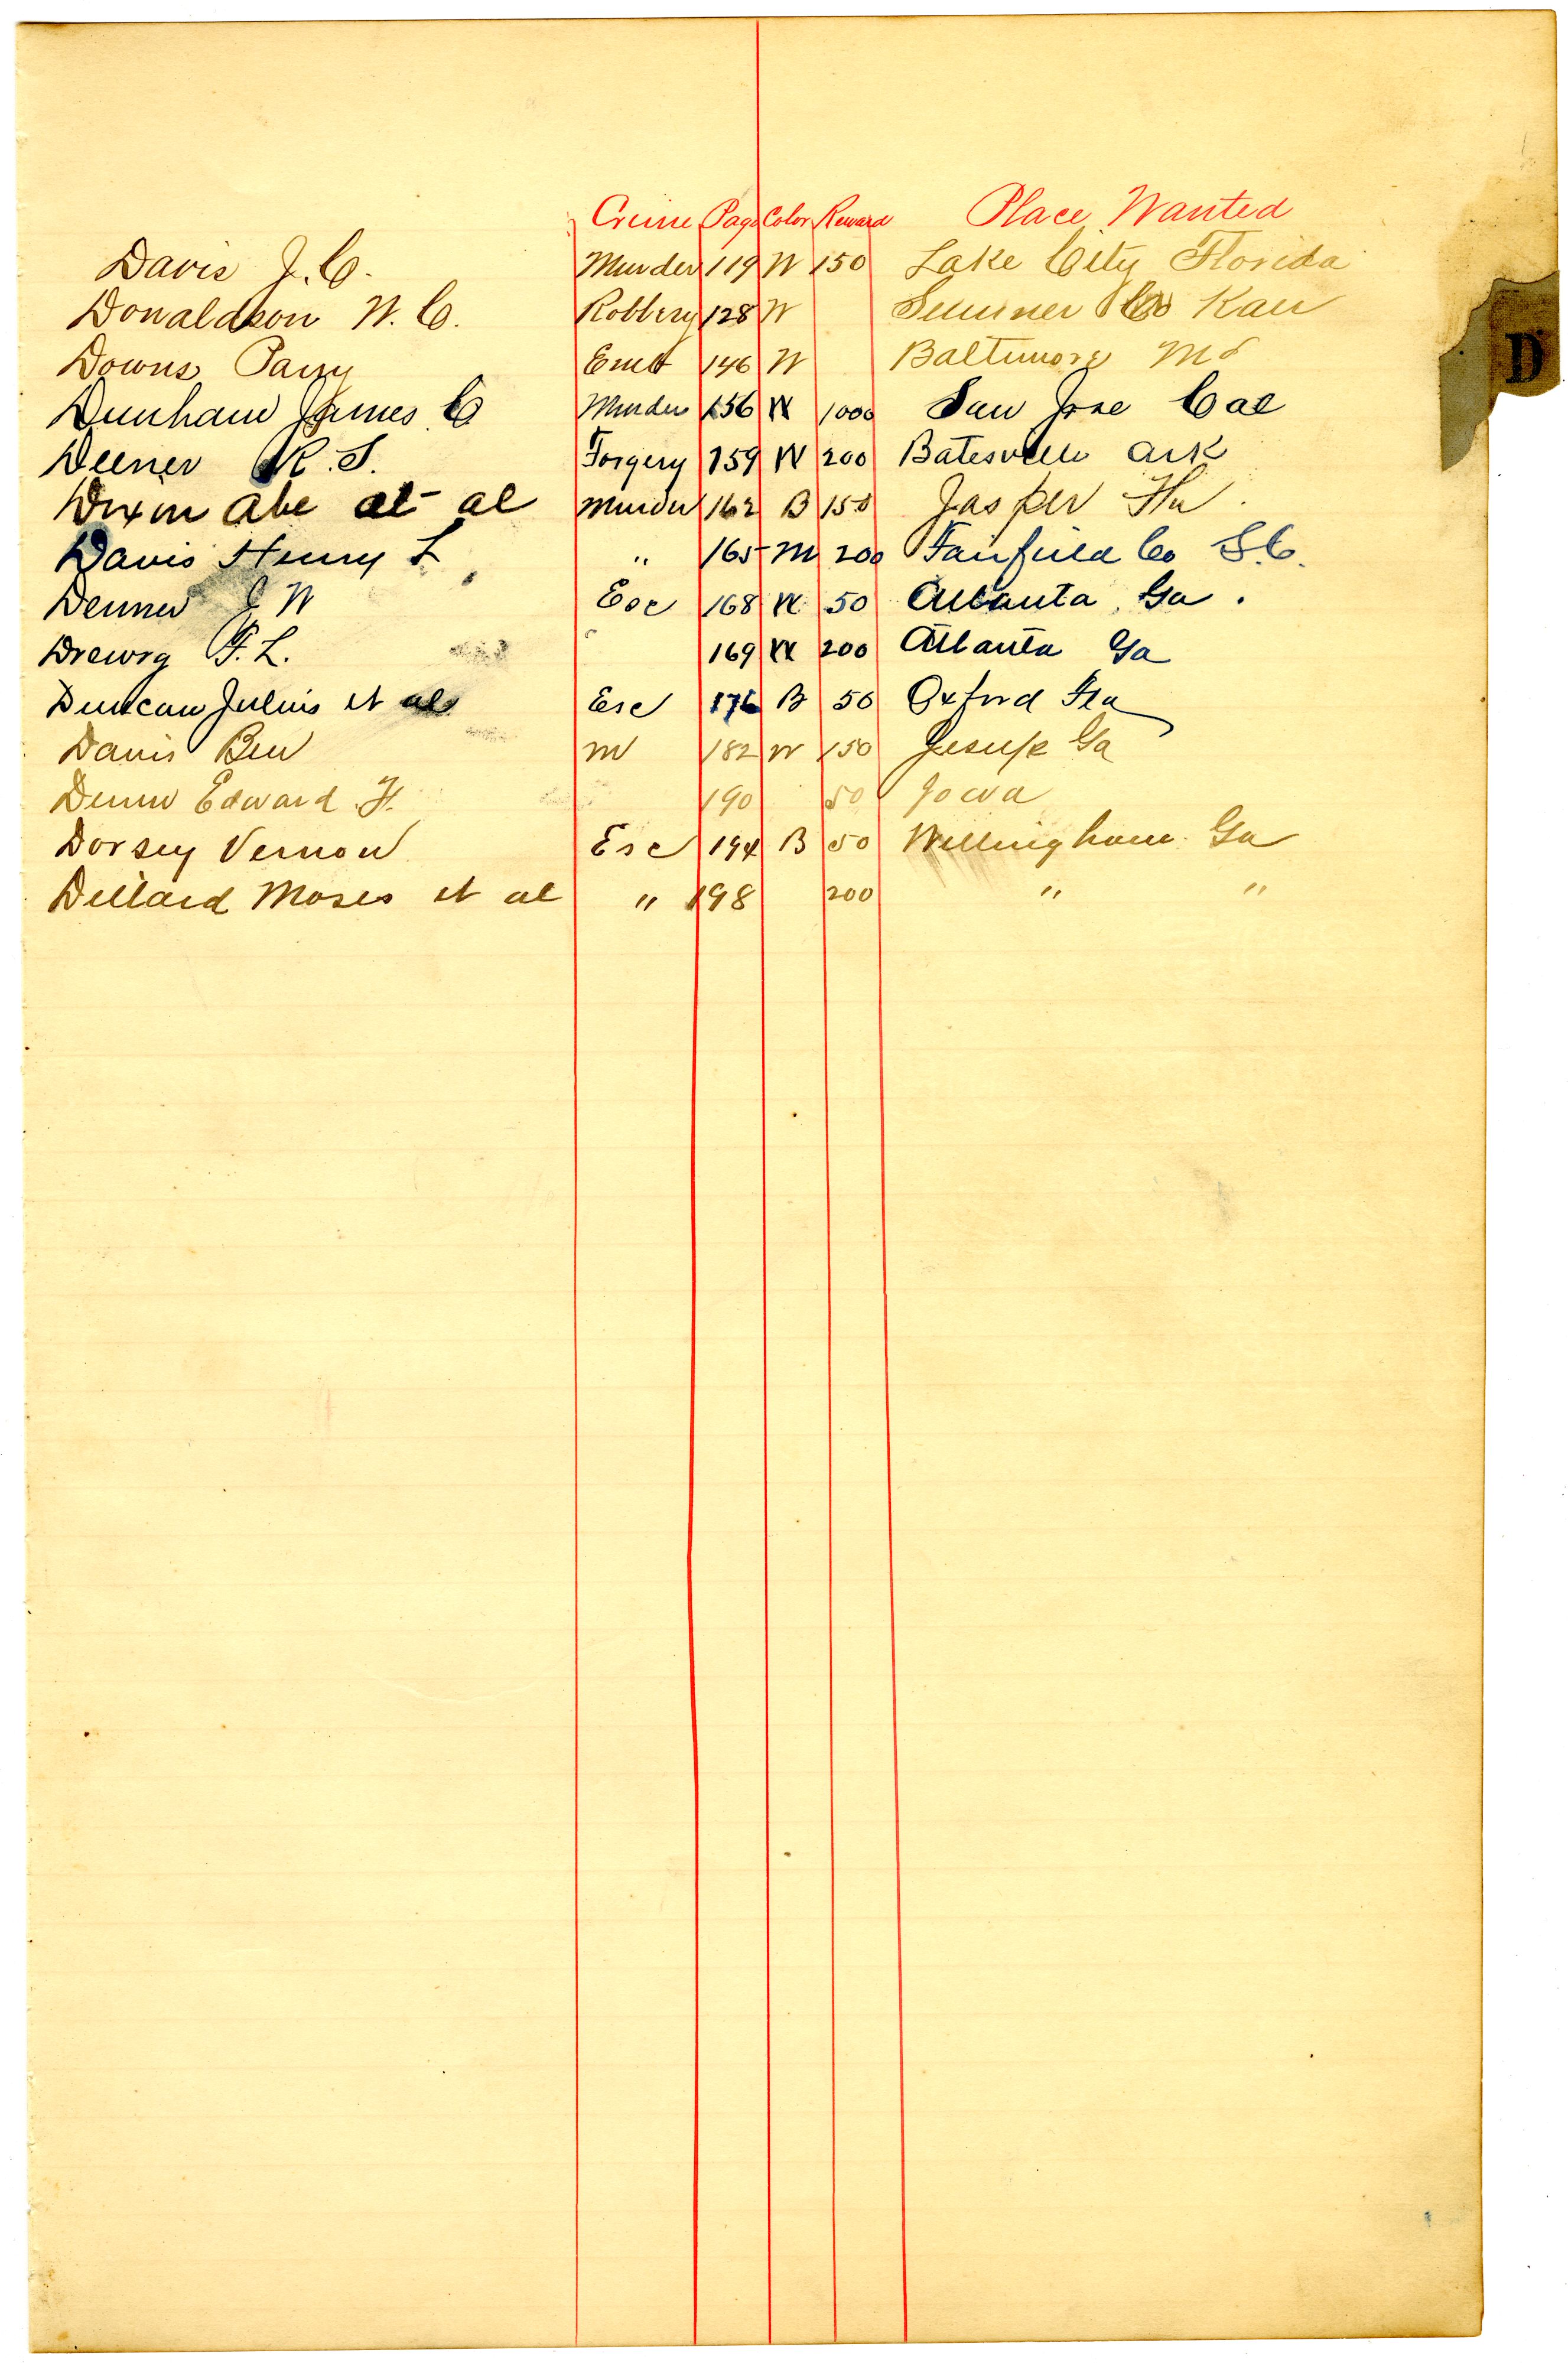 Crime Page Color Reward Place Wanted
Davis J. C. Murder 119 W 150 Lake City Florida
Donaldson W. C. Robbery 128 W Sumner Co Kan
Downs Parry Emb 146 W Baltimore Md
Dunham James C Murder 156 W 1000 San Jose Cal
Deener R. S. Forgery 159 W 200 Batesville Ark
Dixon Abe et al Murder 162 B 150 Jasper Fla.
Davis Henry L " 165 M 200 Fairfield Co S.C.
Denner J W Esc 168 W 50 Atlanta, Ga.
Drewry F. L. 169 W 200 Atlanta Ga
Duncan Julius et als Esc 176 B 50 Oxford Fla
Davis Ben M 182 W 150 Jesup Ga
Edward F. 190 50 Iowa
Dorsey Vernon Esc 194 B 50 Willingham Ga
Dillard Moses et al " 198 200 " "
D